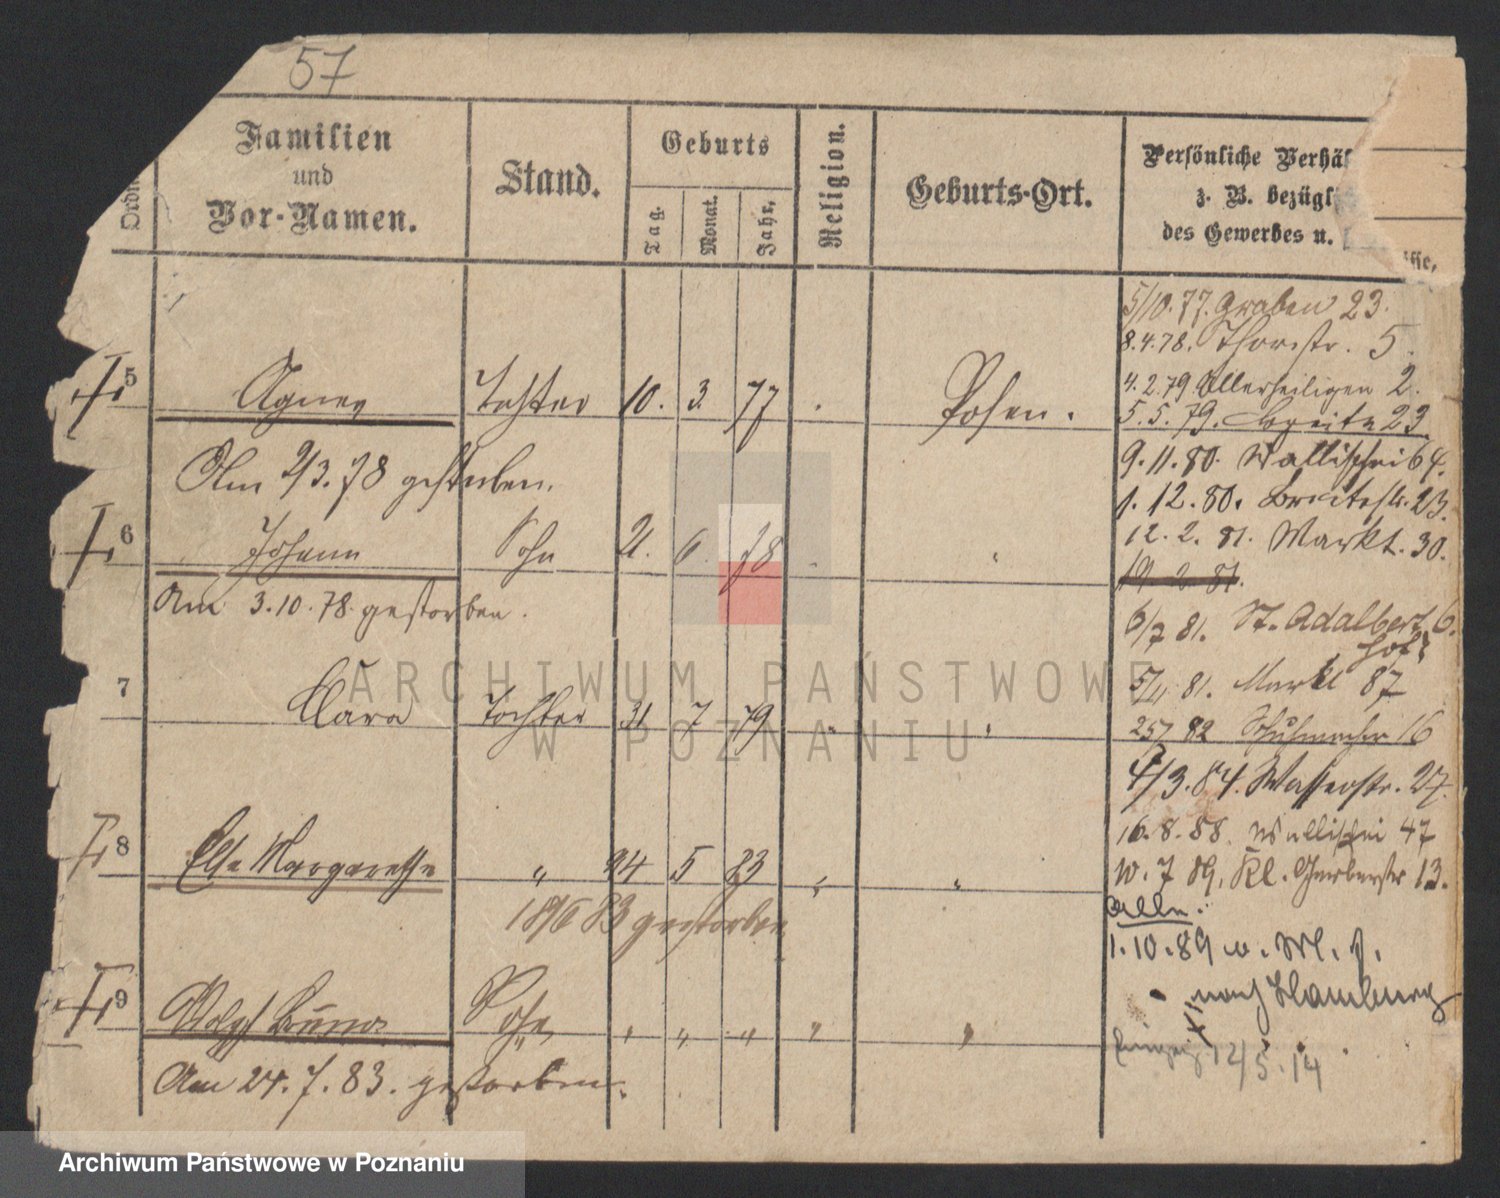 57
Familien
und
Vor-Namen.
Stand.
Geburts
Tag.
Monat.
Jahr.
Religion.
Geburts-Ort.
Persönliche Verhäl
z. B. bezügl
des Gewerbes u.
5/10.77. Graben 23.
8.4.78. Thorstr. 5.
4.2.79 Allerheiligen 2.
5 Agnes Tochter 10. 3. 77 Posen.
5.5.79. Breite 23
Am 2/3.78 gestorben.
9.11.80. Wallischei 64.
1.12.80. Breitestr. 23.
6 Johann Sohn 21. 6. 78
12.2.81. Markt. 30.
19 2 81.
Am 3.10.78 gestorben.
6/7 81. St. Adalbert 6.
Hof
5/11 81. Markt 87
7 Clara Tochter 31 7 79
25/7 82 Schuhmacher 16
4/3.84. Wasserstr. 27.
16.8.88. Wallischei 47
8 Else Margarethe " 24 5 83 "
10.7 89. Kl. Gerberstr 13.
18/6 83 gestorben
alln.
1.10.89
nach Hamburg
9 Adolf Bruno Sohn " " " " "
12/5.14
Am 24.7.83. gestorben.
ARCHIWUM PAŃSTWOWE
W POZNANIU
Archiwum Państwowe w Poznaniu